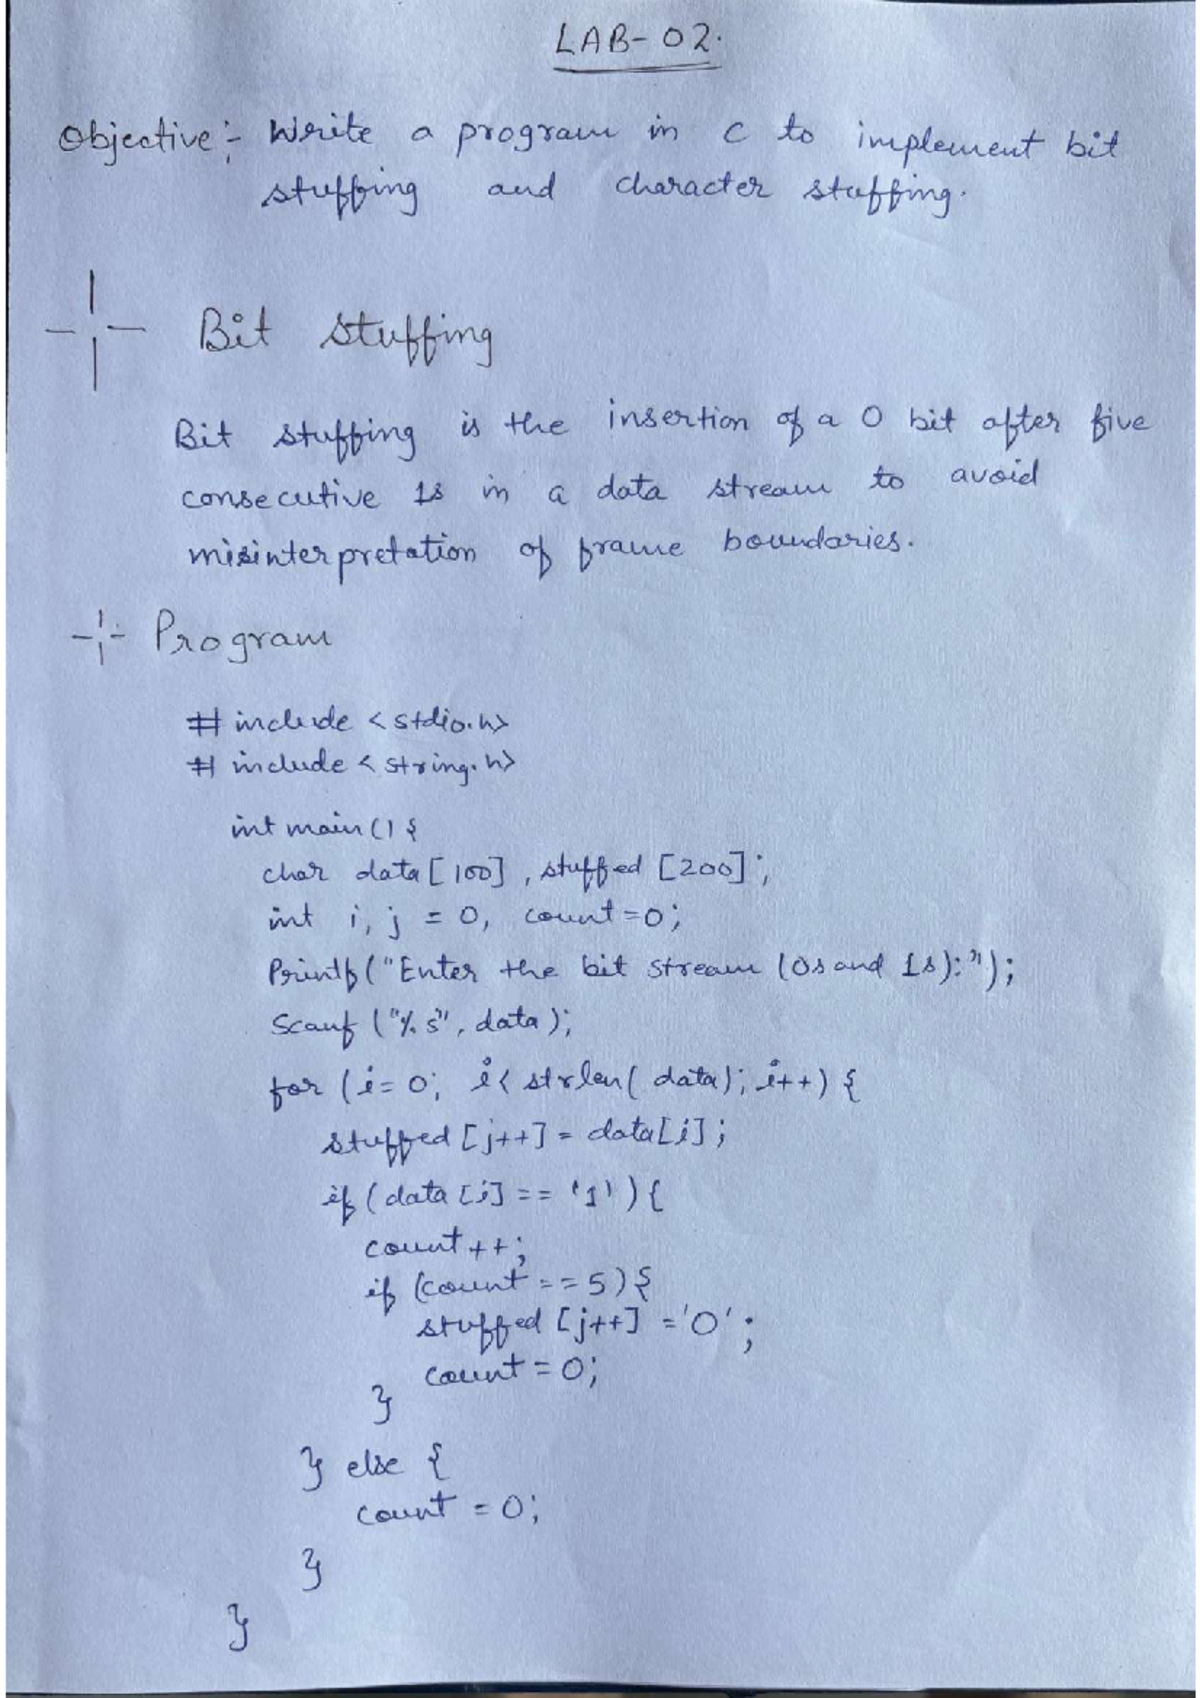 LAB-02.
Objective:- Write a program in c to implement bit
stuffing and character stuffing.
Bit stuffing
Bit stuffing is the insertion of a 0 bit after five
consecutive 1s in a data stream to avoid
misinterpretation of frame boundaries.
Program
# include <stdio.h>
# include <string.h>
int main() {
char data [100], stuffed [200];
int i, j = 0, count=0;
Printf ("Enter the bit stream (0s and 1s):");
Scanf ("%s", data);
for (i=0; i< strlen( data); i++) {
stuffed [j++] = data[i];
if (data [i] == '1') {
count ++;
if (count == 5) {
stuffed [j++] = '0';
count = 0;
}
} else {
count = 0;
}
}